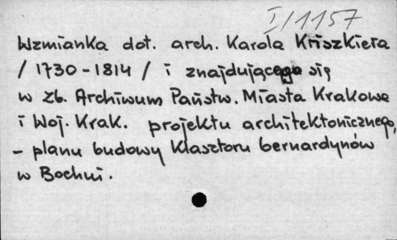 I/1157
Wzmianka dot. arch. Karola Kriszkiera
/ 1730-1814 / i znajdującego się
w zb. Archiwum Państw. Miasta Krakowa
i Woj. Krak. projektu architektonicznego,
- planu budowy klasztoru bernardynów
w Bochni.